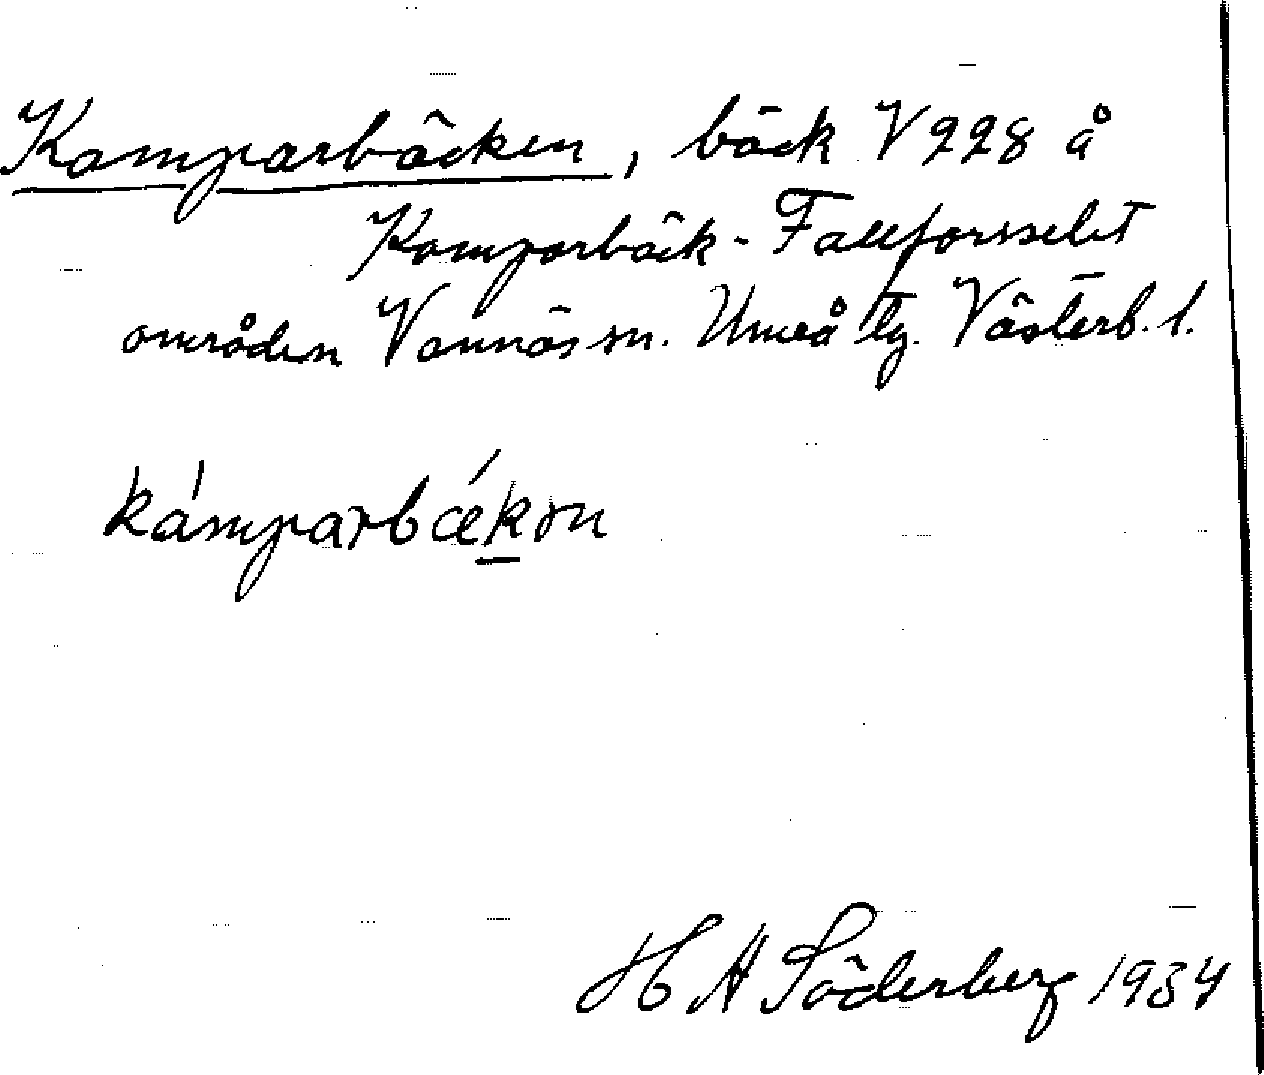 Kamparbäcken, bäck V 228 å
Kamparbäck-Fallforsselet
områden Vännäs sn. Umeå tg. Västerb. l.
kámparbǽkən
H A Söderberg 1934